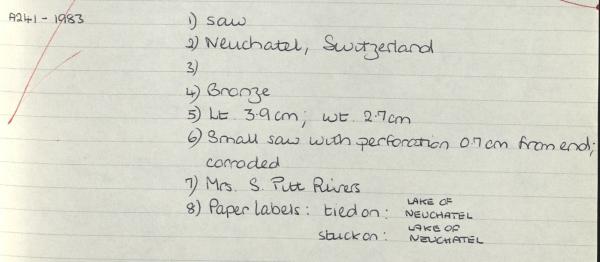 A241-1983
1) saw
2) Neuchatel, Switzerland
3)
4) Bronze
5) Lt. 3.9cm; wt. 2.7cm
6) Small saw with perforation 0.7cm from end;
corroded
7) Mrs. S. Pitt Rivers
8) Paper labels: tied on: LAKE OF
NEUCHATEL
stuck on: LAKE OF
NEUCHATEL